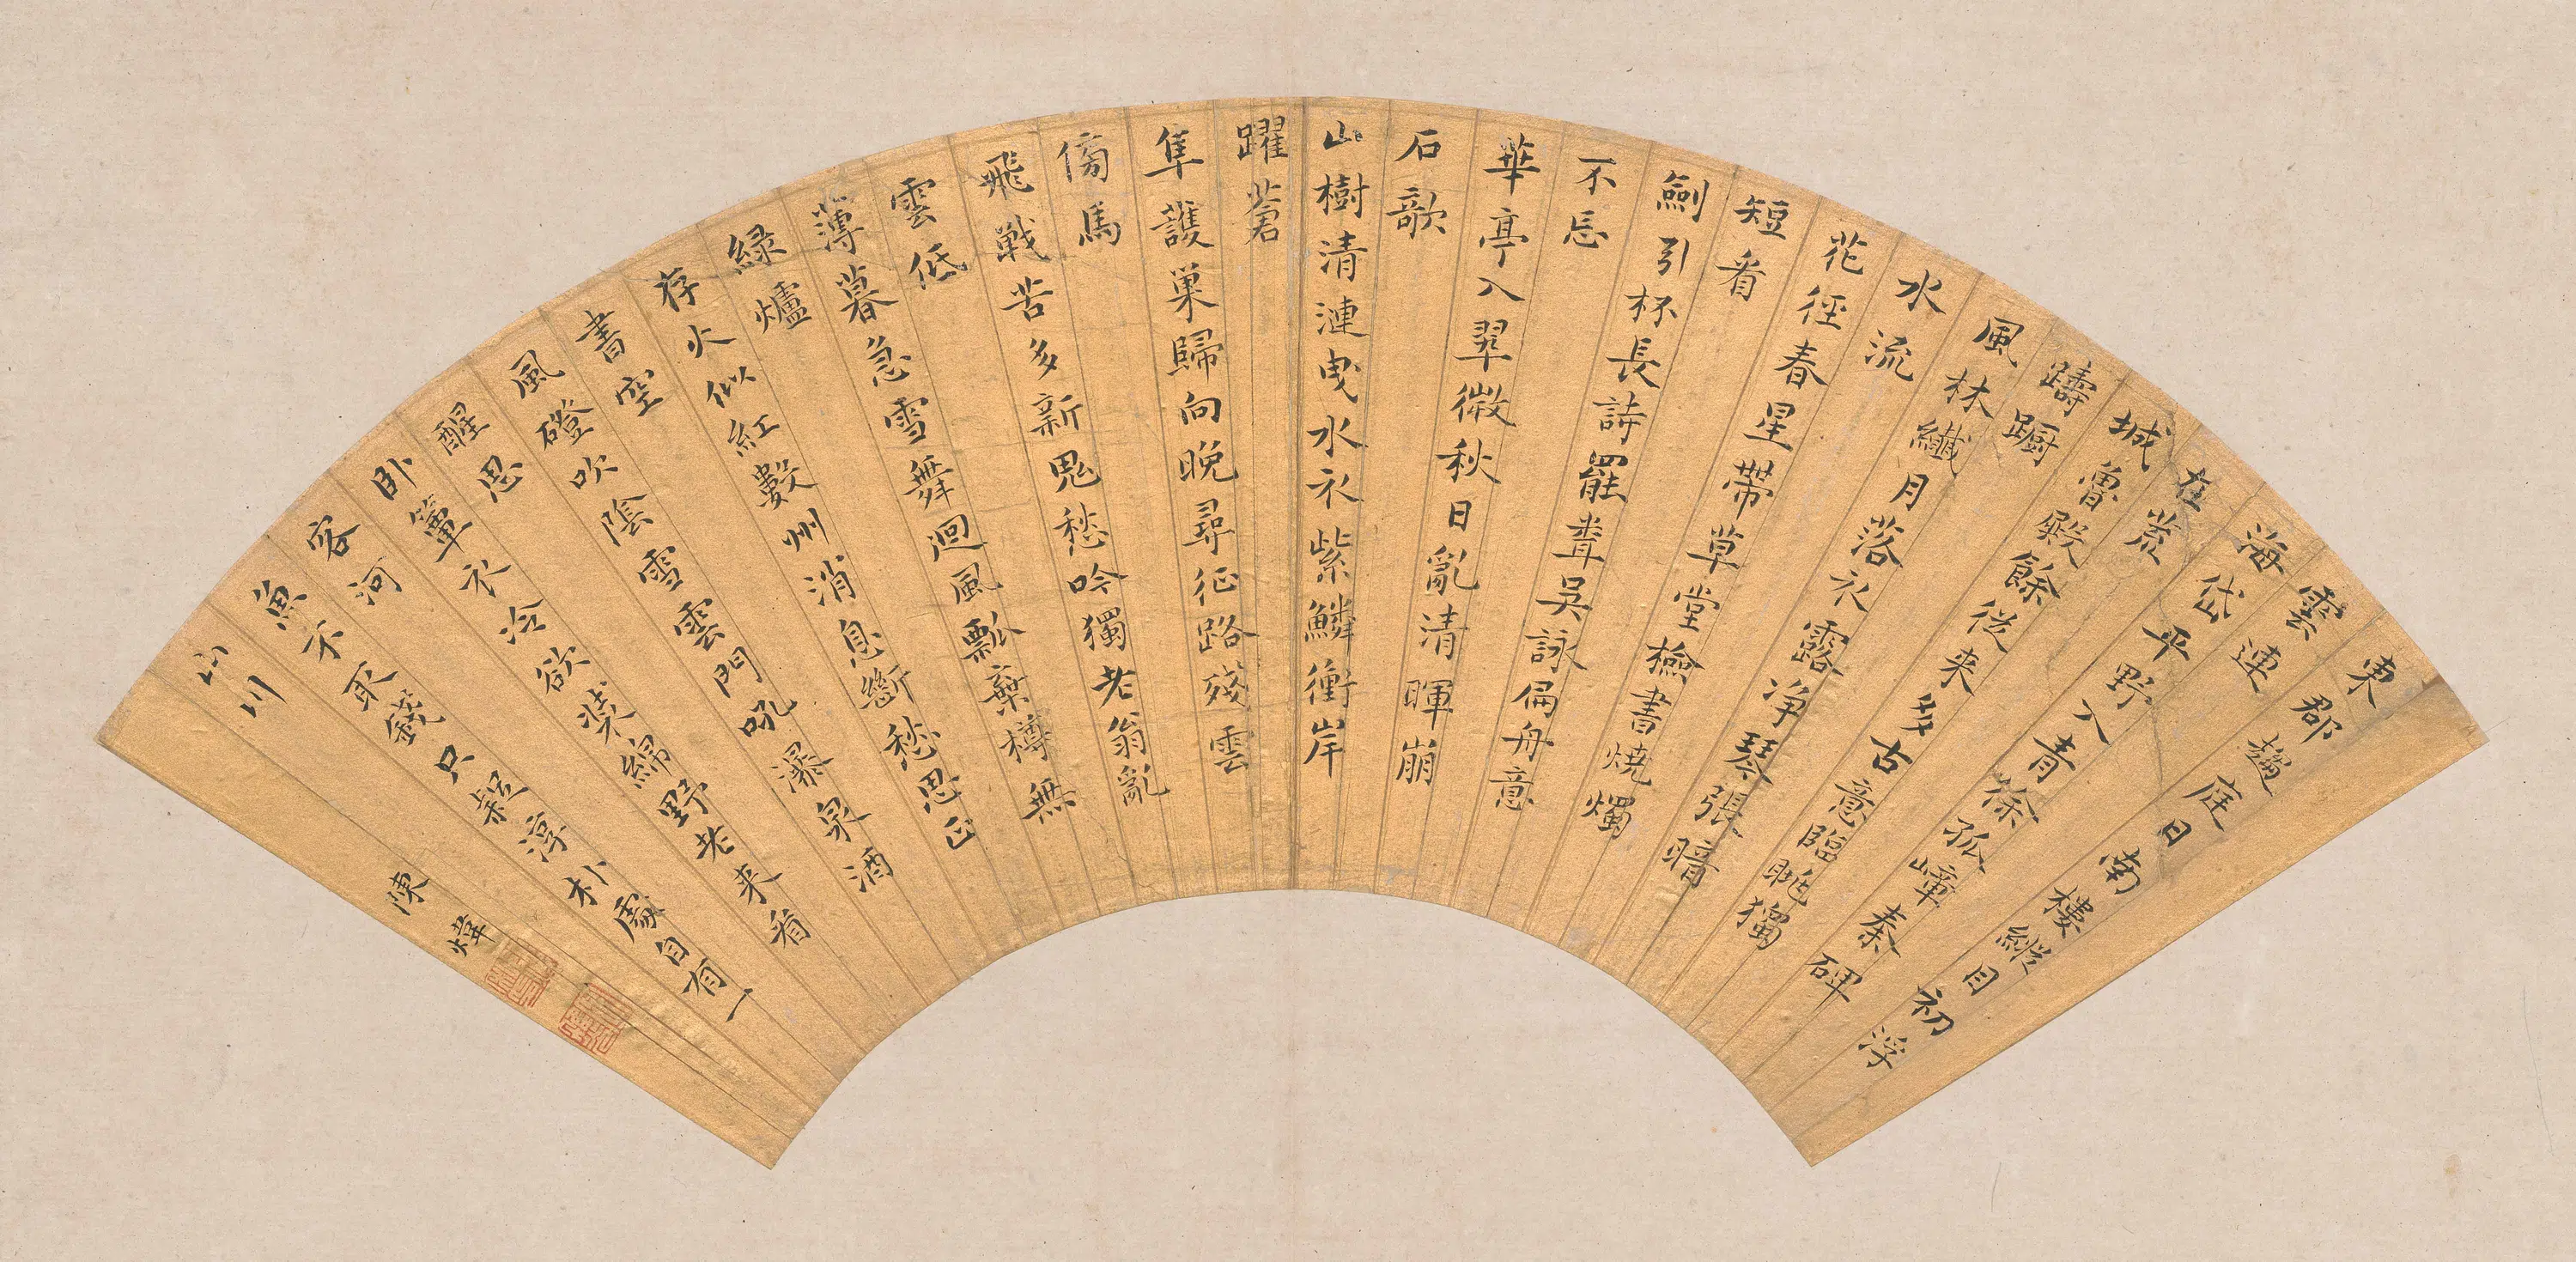 東郡趨庭日南樓縱目初浮
雲連
海岱平野入青徐孤嶂秦碑
在荒
城魯殿餘從来多古意臨眺獨
躊躕
風林纖月落衣露淨琴張暗
水流
花徑春星帶草堂檢書燒燭
短看
劍引杯長詩罷聾吳詠扁舟意
不忘
華亭入翠微秋日亂清暉崩
石欹
山樹清漣曳水衣紫鱗衝岸
躍蒼
隼護巢歸向晚尋征路殘雲
傍馬
飛戰苦多新鬼愁吟獨老翁亂
雲低
薄暮急雪舞迴風瓢棄樽無
綠爐
存火似紅數州消息斷愁思正
書空
風磴吹陰雪雲門吼瀑泉酒
醒思
臥簟衣冷欲裝綿野老来看
客河
魚不取錢只疑淳朴處自有一
山川
陳煒